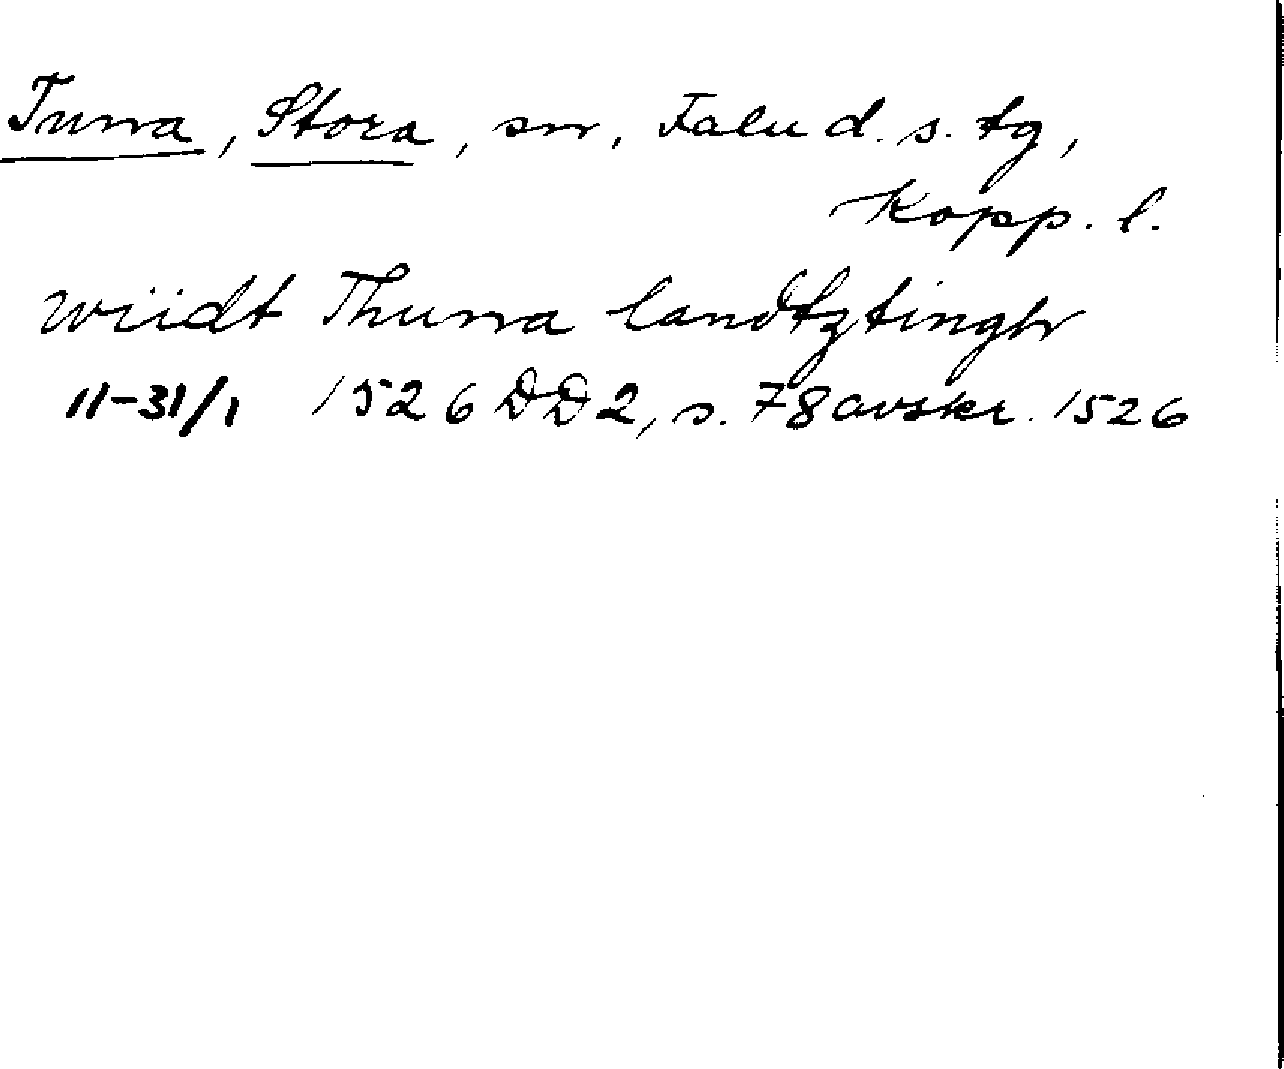 Tuna, Stora, sn, Falu d. s. tg,
Kopp. l.
wiidt Thuna landtztingh
11-31/1 1526 DD 2, s. 78 avskr. 1526